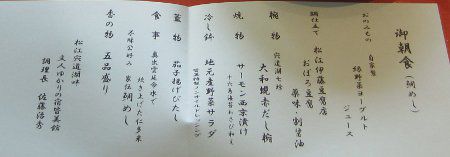 御朝食（鯛めし）
おのみもの　自家製
緑野菜ヨーグルト
ジュース
鯛仕立て　松江伊藤豆腐店
おぼろ豆腐
薬味　割醤油
椀物　宍道湖七珍
大和蜆赤だし椀
焼物　サーモン西京漬け
冷し鉢　地元産野菜サラダ
蓋物　茄子揚げびたし
食事　奥出雲延命水で
炊き上げた仁多米
不昧公好み　家伝鯛めし
香の物　五品盛り
松江宍道湖畔
文人ゆかりの宿皆美館
調理長　佐藤浩秀